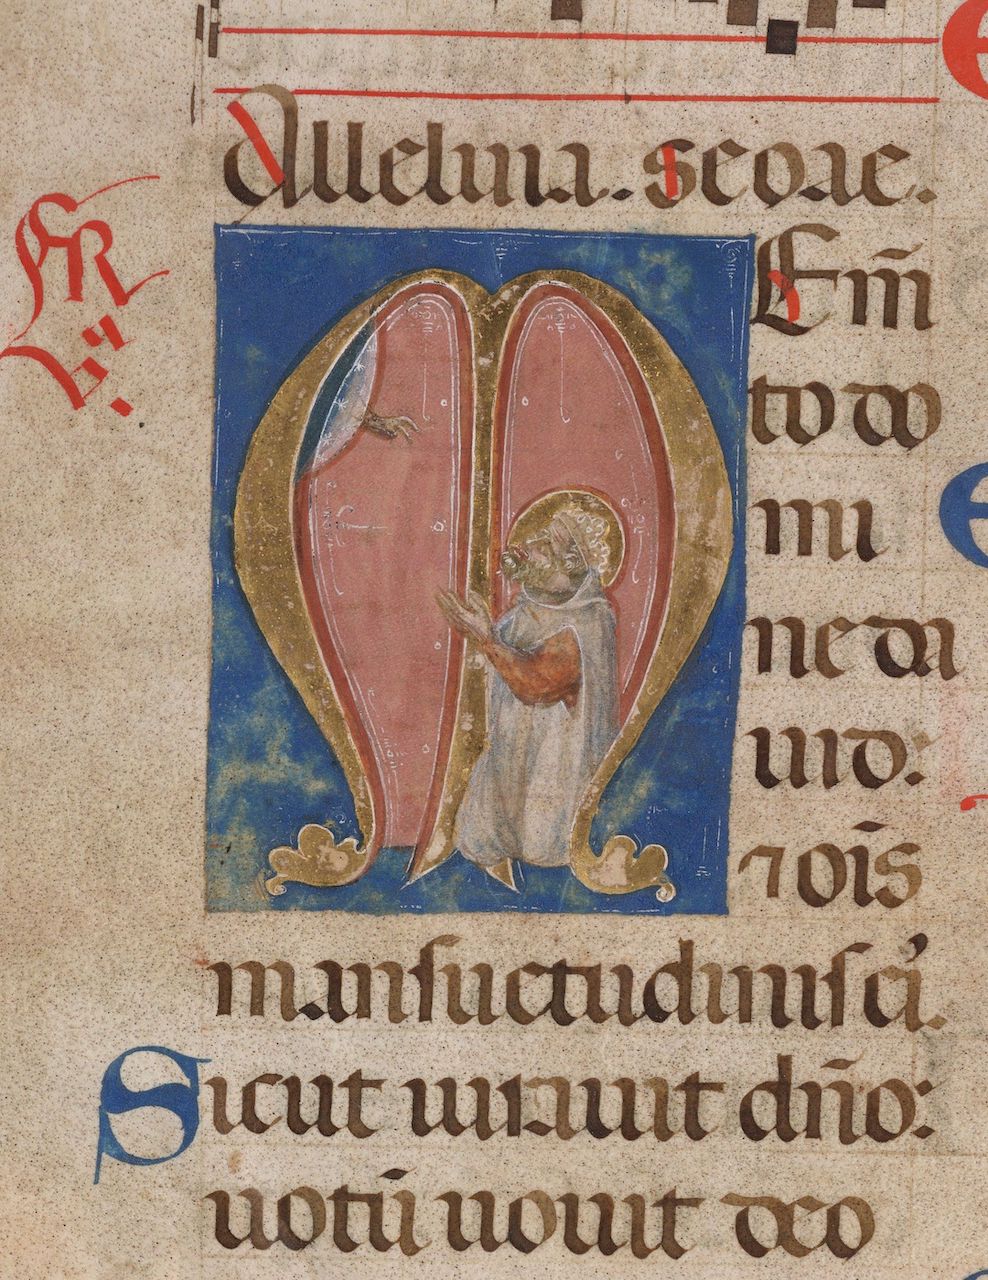 Alleluia. seoae.
M Em̄
to do
mi
ne da
uid:
⁊ oīs
mansuetudinis ei'.
Sicut iurauit dn̄o:
uotū uouit deo